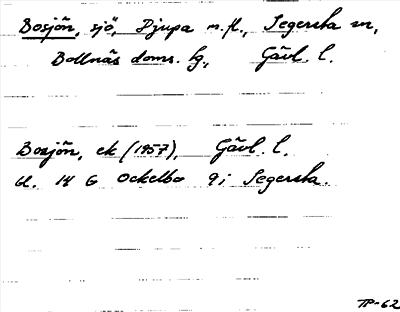 Bosjön, sjö, Djupa m.fl., Segersta sn,
Bollnäs doms. hg., Gävl. l.
Bosjön, ek (1957), Gävl. l.
bl. 14 G Ockelbo 9i Segersta.
TP-62